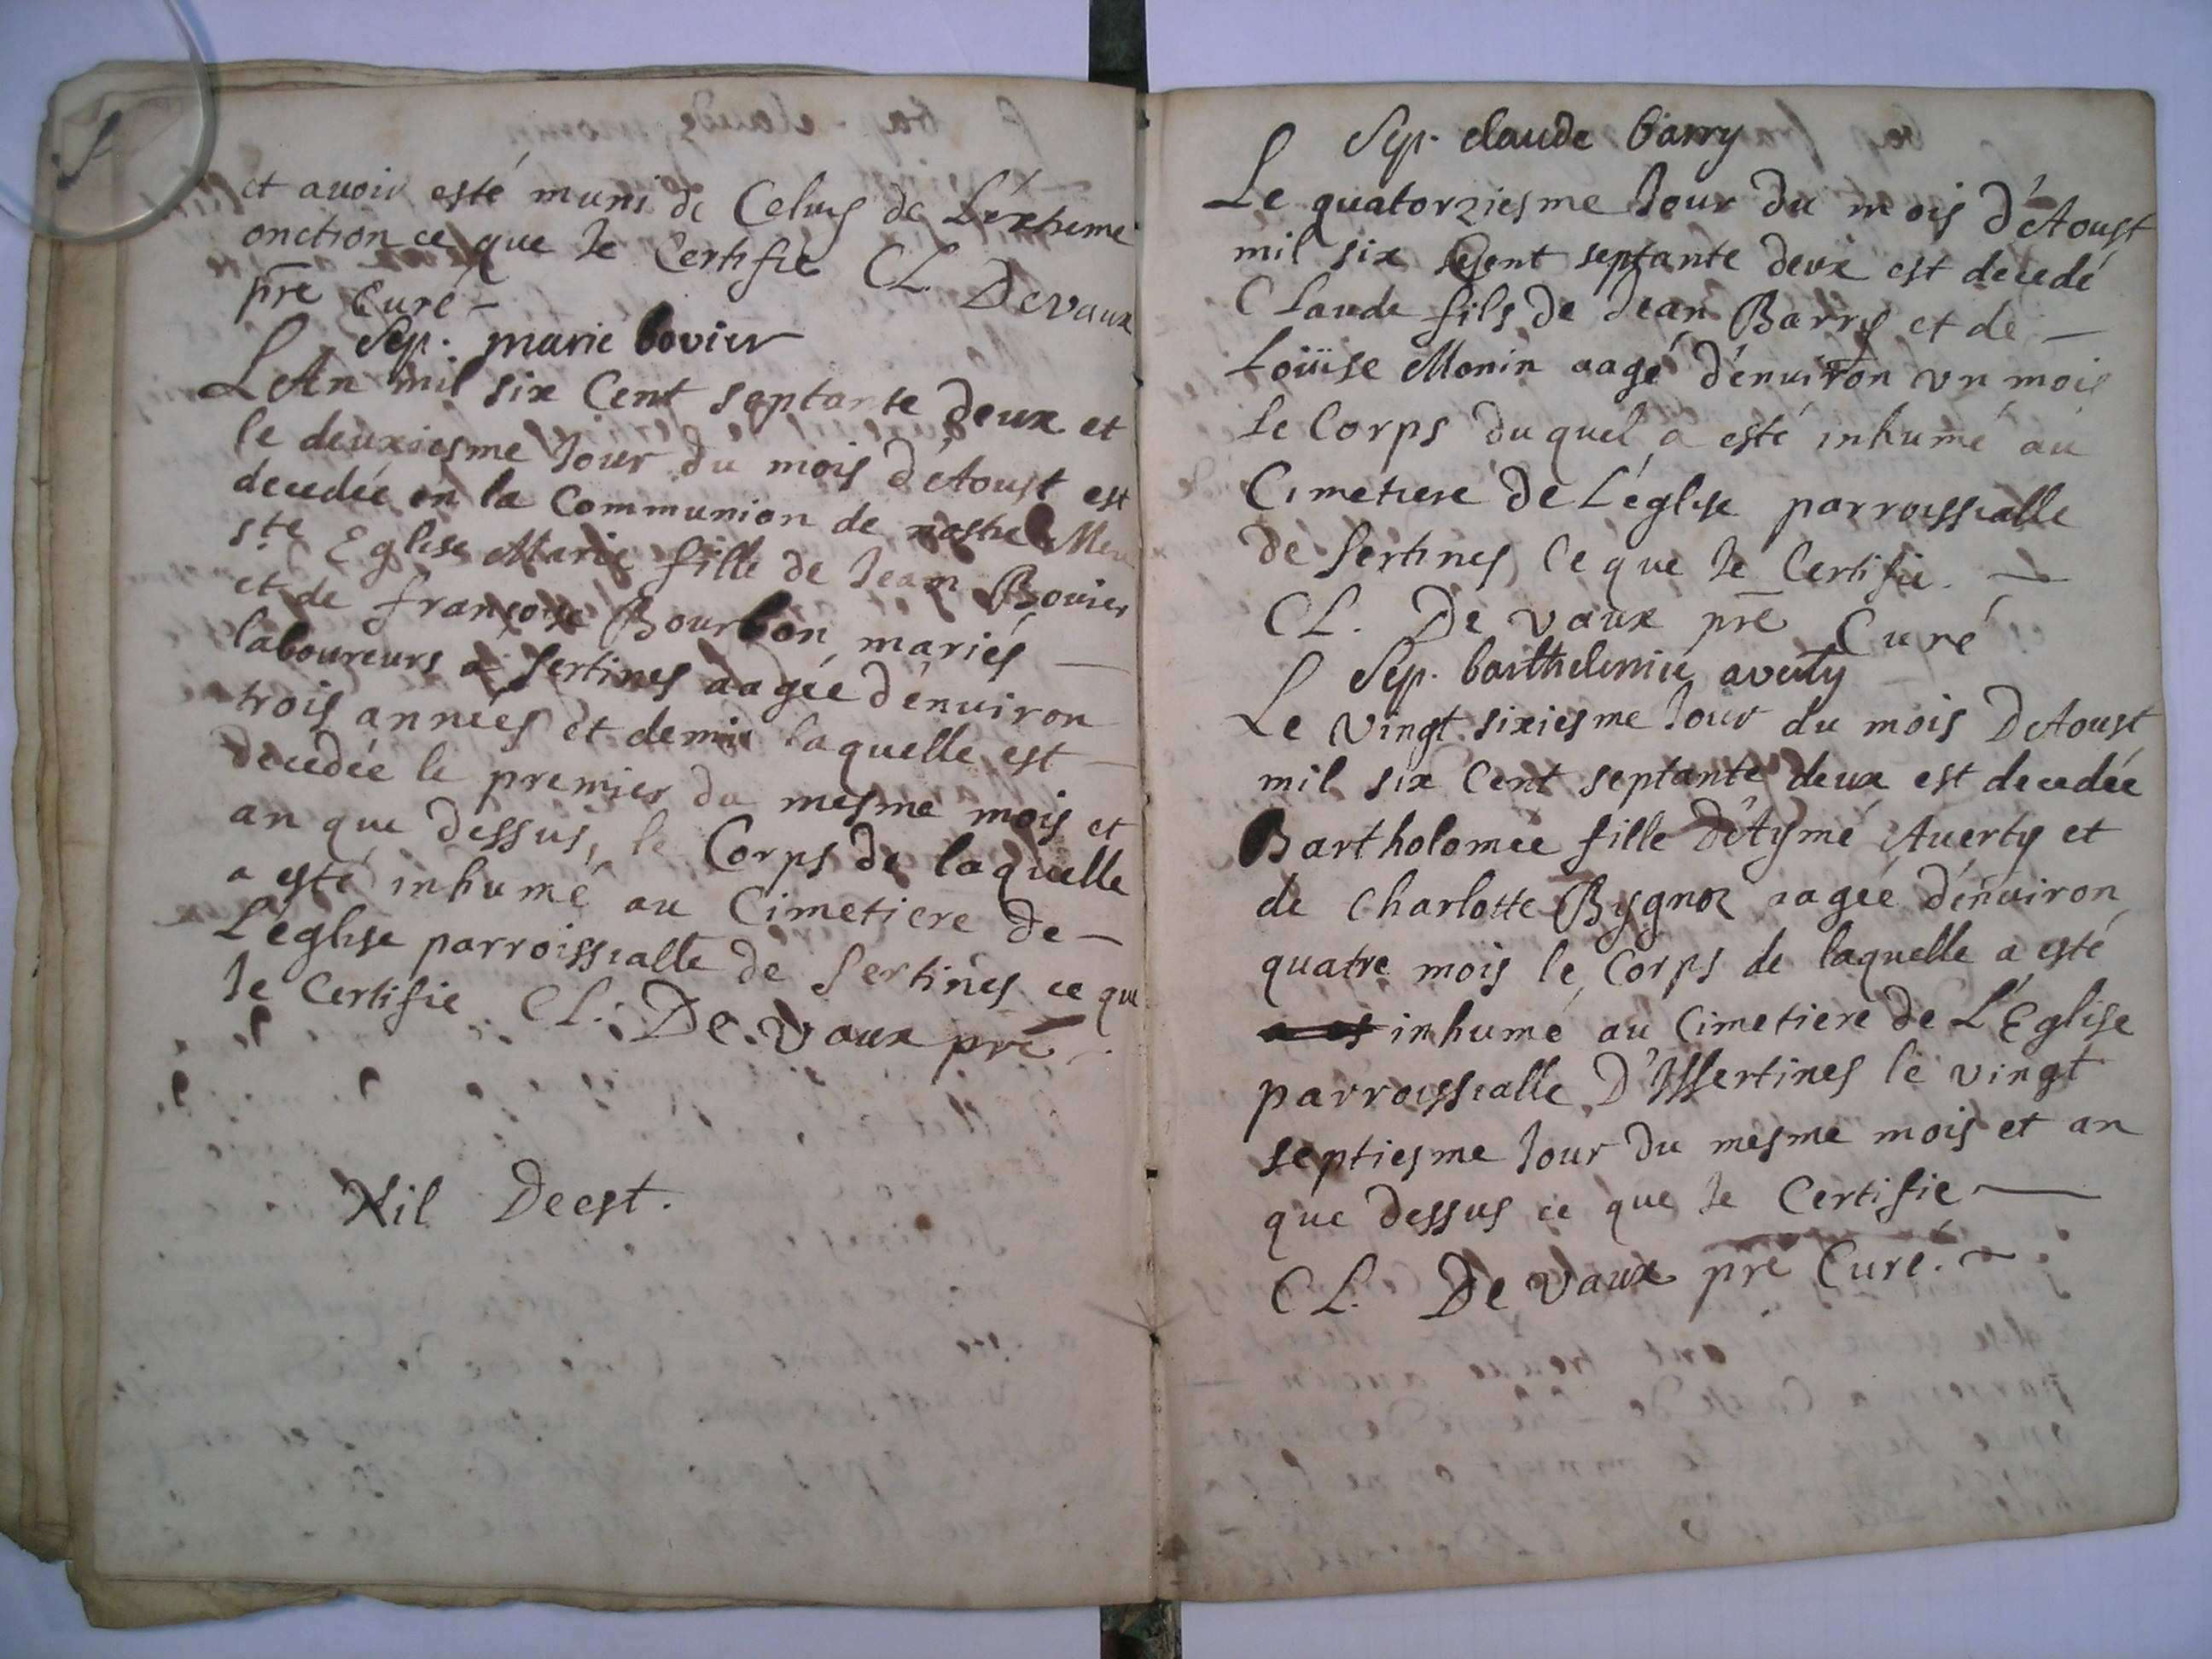 et avoir esté muni de Celuy de L'extreme
onction ce que Je Certifie CL. De vaux
pre Curé -
Sep. marie bovier
L'An mil six Cent septante deux et
le deuxiesme Jour du mois d'Aoust est
decedée en la Communion de nostre Mere
ste Eglise Marie fille de Jean Bovier
et de françoise Bourbon mariés —
laboureurs a Sertines aagée d'enuiron
trois années et demie laquelle est —
decedée le premier du mesme mois et
an que dessus, le Corps de laquelle
a esté inhumé au Cimetiere de —
L'église parroissialle de Sertines ce que
Je Certifie CL. De vaux pre
Nil Deest.
Sep. claude barry
Le quatorziesme Jour du mois d'Aoust
mil six Cent septante deux est decedé
CLaude fils de Jean Barry et de —
Loüise Monin aagé d'enuiron vn mois
Le Corps duquel a esté inhumé au
Cimetiere de L'église parroissialle
de Sertines Ce que Je Certifie. —
CL. De vaux pre Curé
Sep. barthelemie averty
Le vingt sixiesme Jour du mois D'Aoust
mil six Cent septante deux est decedée
Bartholomée fille d'Aymé Auerty et
de Charlotte aagée d'enuiron
quatre mois le Corps de laquelle a esté
inhumé au Cimetiere de L'Eglise
parroissialle D'Issertines le vingt
septiesme Jour du mesme mois et an
que dessus ce que Je Certifie —
CL. De vaux pre Curé. ~